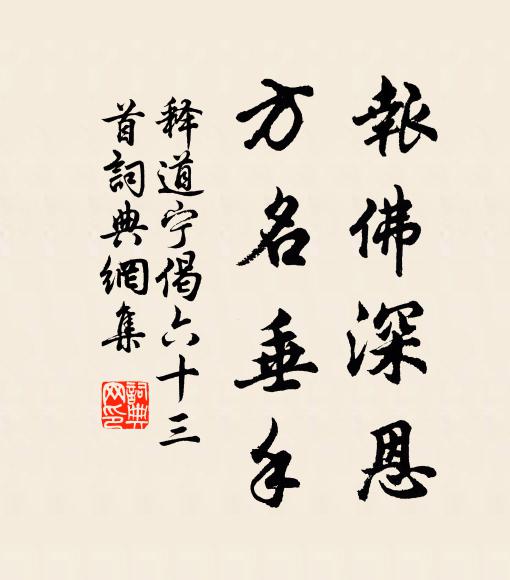 報佛深恩
方名垂手
释道宁偈六十三
首詞典網集
詞典
网印